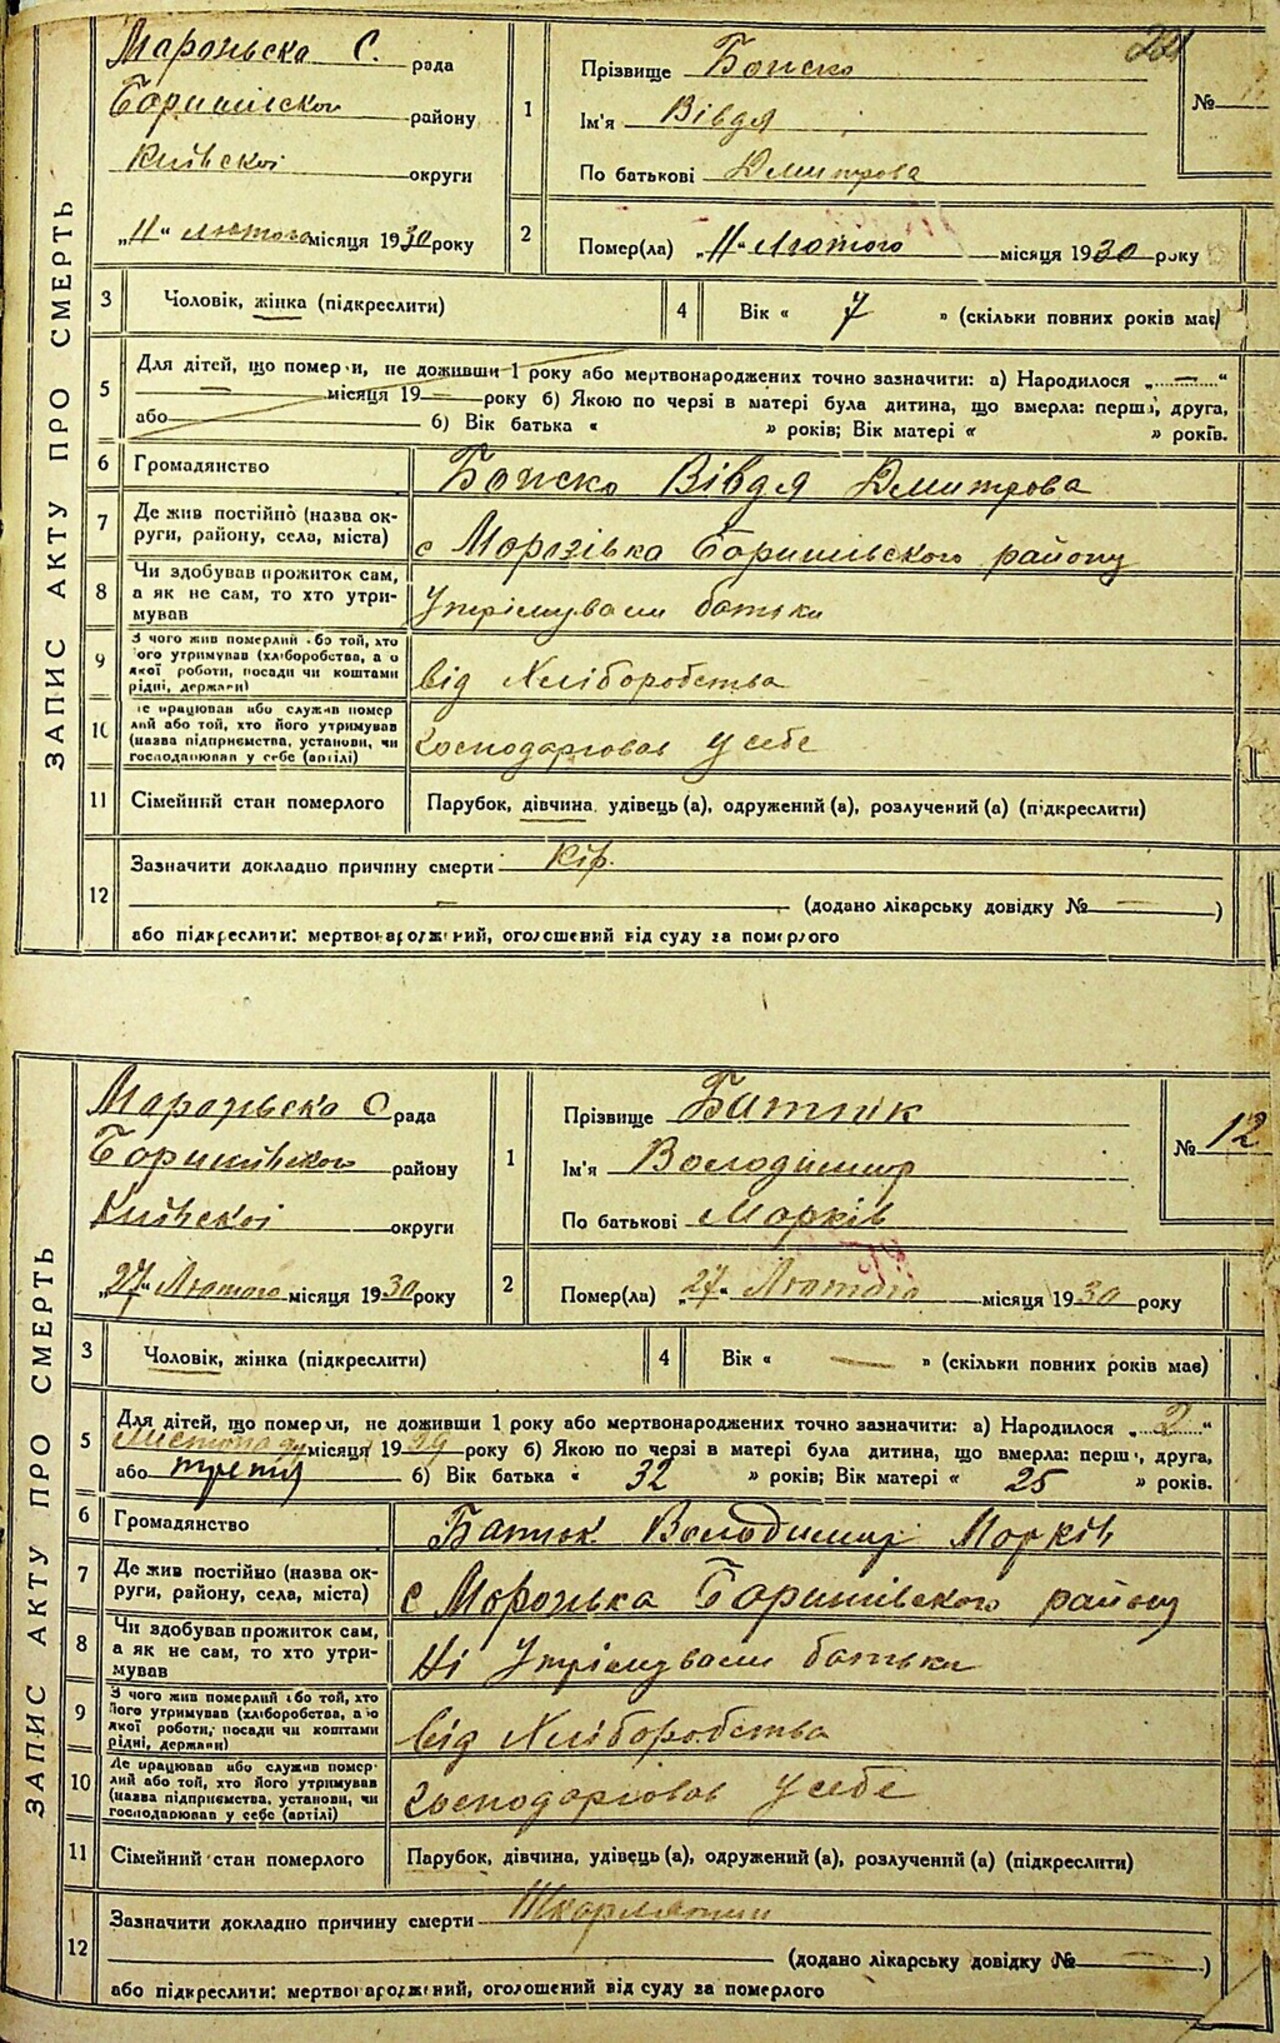 ЗАПИС АКТУ ПРО СМЕРТЬ
рада
району
Київської округи
„11“ лютого місяця 1930 року
1
Прізвище
Ім'я Вівдя
По батькові Дмитрова
№
2
Помер(ла) „11“ Лютого місяця 1930 року
3 Чоловік, жінка (підкреслити)
4 Вік « 7 » (скільки повних років має)
5 Для дітей, що померли, не доживши 1 року або мертвонароджених точно зазначити: а) Народилося „ — “
— місяця 19 — року б) Якою по черзі в матері була дитина, що вмерла: перша, друга,
або б) Вік батька « » років; Вік матері « » років.
6 Громадянство Вівдя Дмитрова
7 Де жив постійно (назва ок-
руги, району, села, міста)
с Морозівка Баришівського району
8 Чи здобував прожиток сам,
а як не сам, то хто утри-
мував
Утрімували батьки
9 З чого жив померлий або той, хто
його утримував (хліборобства, а о
якої роботи, посади чи коштами
рідні, держави)
від Хліборобства
10 Де працював або служив помер
лий або той, хто його утримував
(назва підприємства, установи, чи
господарював у себе (артілі)
Господарював у себе
11 Сімейний стан померлого Парубок, дівчина, удівець (а), одружений (а), розлучений (а) (підкреслити)
12 Зазначити докладно причину смерти Кір.
— (додано лікарську довідку № — )
або підкреслити: мертвонароджений, оголошений від суду за померлого
ЗАПИС АКТУ ПРО СМЕРТЬ
рада
Баришівського району
Київської округи
„27“ Лютого місяця 1930 року
1
Прізвище
Ім'я Володимир
По батькові Марків
№ 12
2
Помер(ла) „27“ Лютого місяця 1930 року
3 Чоловік, жінка (підкреслити)
4 Вік « — » (скільки повних років має)
5 Для дітей, що померли, не доживши 1 року або мертвонароджених точно зазначити: а) Народилося „ 2 “
Листопаду місяця 1929 року б) Якою по черзі в матері була дитина, що вмерла: перша, друга,
або третя б) Вік батька « 32 » років; Вік матері « 25 » років.
6 Громадянство Володимир Марків
7 Де жив постійно (назва ок-
руги, району, села, міста)
с Баришівського району
8 Чи здобував прожиток сам,
а як не сам, то хто утри-
мував
Ні Утрімували батьки
9 З чого жив померлий або той, хто
його утримував (хліборобства, а о
якої роботи, посади чи коштами
рідні, держави)
від Хліборобства
10 Де працював або служив помер-
лий або той, хто його утримував
(назва підприємства, установи, чи
господарював у себе (артілі)
Господарював у себе
11 Сімейний стан померлого Парубок, дівчина, удівець (а), одружений (а), розлучений (а) (підкреслити)
12 Зазначити докладно причину смерти
(додано лікарську довідку № — )
або підкреслити: мертвонароджений, оголошений від суду за померлого